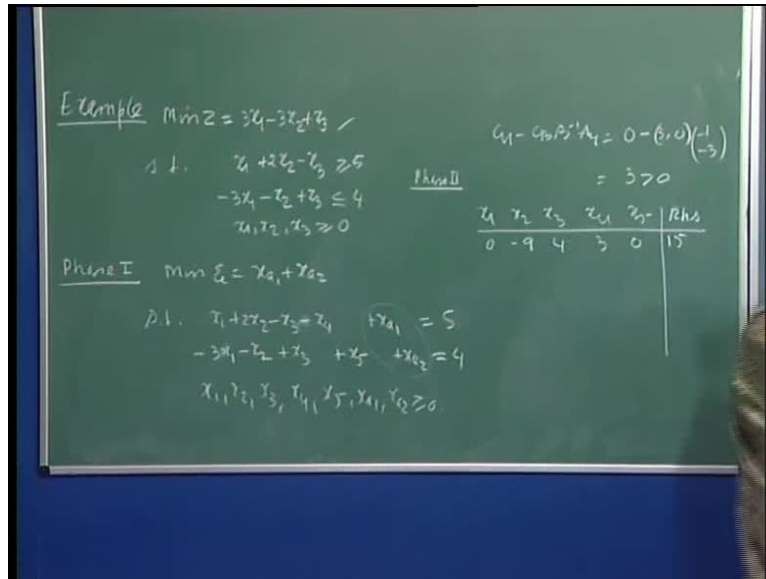 Example Min Z = 3x₁-3x₂+x₃
s.t. x₁+2x₂-x₃ ≥ 5
-3x₁-x₂+x₃ ≤ 4
x₁,x₂,x₃ ≥ 0
Phase I Min ξ = xₐ₁+xₐ₂
s.t. x₁+2x₂-x₃-x₄ +xₐ₁ = 5
-3x₁-x₂+x₃ +x₅ +xₐ₂ = 4
x₁,x₂,x₃,x₄,x₅,xₐ₁,xₐ₂ ≥ 0
C₄ - C_B B⁻¹A₄ = 0-(3,0)(-1 -3)
= 3>0
Phase II
x₁ x₂ x₃ x₄ x₅ Rhs
0 -9 4 3 0 15